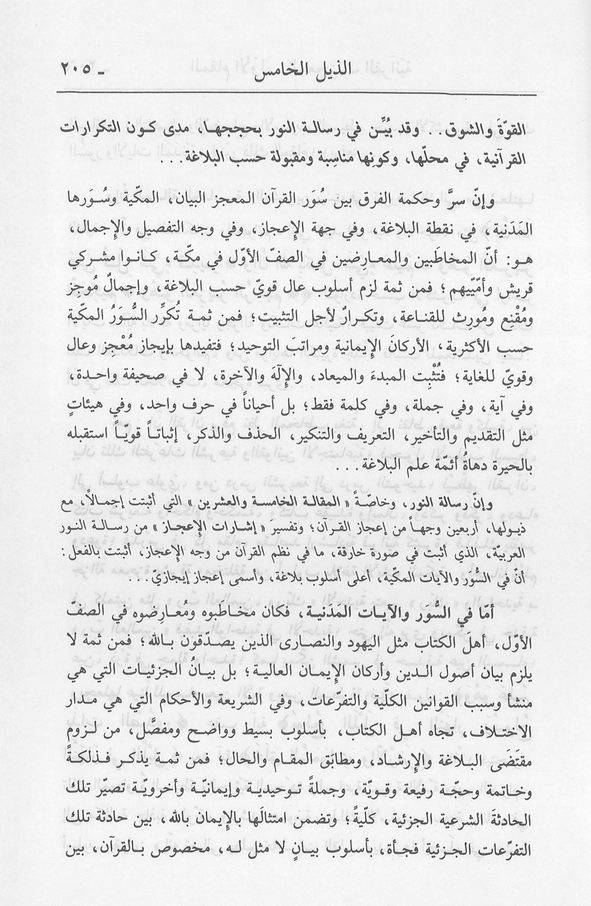 الذيل الخامس ـ ٢٠٥
القوّةَ والشوق.. وقد بُيِّن في رسالة النور بحججها، مدى كون التكرارات
القرآنية، في محلّها، وكونِها مناسِبة ومقبولة حسب البلاغة...
وإنّ سرَّ وحكمة الفرق بين سُوَر القرآن المعجز البيان، المكّية وسُوَرها
المَدَنية، في نقطة البلاغة، وفي جهة الإعجاز، وفي وجه التفصيل والإجمال،
هـو: أنّ المخاطَبين والمعـارِضين في الصفّ الأوّل في مكّـة، كـانـوا مشـركي
قريش وأمّيّيهم؛ فمن ثمة لزم أسلوب عال قويّ حسب البلاغة، وإجمالٌ مُوجِز
ومُقْنِع ومُورِث للقـناعة، وتكـرارٌ لأجل التثبيت؛ فمن ثمـة تُكرِّر السُّوَرُ المكّية
حسب الأكثرية، الأركانَ الإيمانية ومراتبَ التوحيد؛ فتفيدها بإيجاز مُعْجِز وعال
وقويّ للغاية؛ فتُثْبِت المبدءَ والميعاد، والإلٰهَ والآخرة، لا في صحيفة واحـدة،
وفي آية، وفي جملة، وفي كلمة فقط؛ بل أحياناً في حرف واحد، وفي هيئاتٍ
مثل التقديم والتأخير، التعريف والتنكير، الحذف والذكر، إثباتـاً قويّـاً استقبله
بالحيرة دهاةُ أئمّة علم البلاغة...
وإنّ رسالة النور، وخاصّـةً « المقالة الخامسة والعشرين » التي أثبتت إجمـالاً، مع
ذيـولها، أربعين وجهـاً من إعجاز القرآن؛ وتفسيرَ « إشارات الإعجـاز » من رسـالة النور
العربيّة، الذي أثبت في صورة خارقة، ما في نظم القرآن من وجه الإعجاز، أثبتت بالفعل:
أنّ في السُّوَر والآيات المكّية، أعلى أسلوب بلاغة، وأسمى إعجاز إيجازيّ...
أمّا في السُّوَر والآيـات المَدَنيـة، فكان مخـاطَبوه ومُعـارِضوه في الصفّ
الأوّل، أهلَ الكتاب مثل اليهود والنصارى الذين يصدّقون بـالله؛ فمن ثمة لا
يلزم بيان أصول الـدين وأركان الإيمان العالية؛ بل بيـانُ الجزئيـات التي هي
منشأ وسبب القوانين الكلّية والتفرّعات، وفي الشريعة والأحكام التي هي مـدار
الاختـلاف، تجاه أهـل الكتاب، بأسلوب بسيط وواضـح ومفصَّل، من لـزوم
مقتَضَى البـلاغة والإرشـاد، ومطابَقِ المقـام والحال؛ فمن ثمـة يذكـر فـذلكـةً
وخـاتمة وحجّـة رفيعة وقـويّة، وجملةً تـوحيديـة وإيمانيّـة وأخرويّـة تصيّر تلك
الحادثةَ الشرعية الجزئية، كلّيةً؛ وتضمن امتثالَها بالإيمان بالله، بين حادثة تلك
التفرّعات الجـزئية فجـأة، بأسلوب بيـانٍ لا مثل لـه، مخصوص بـالقرآن، بين